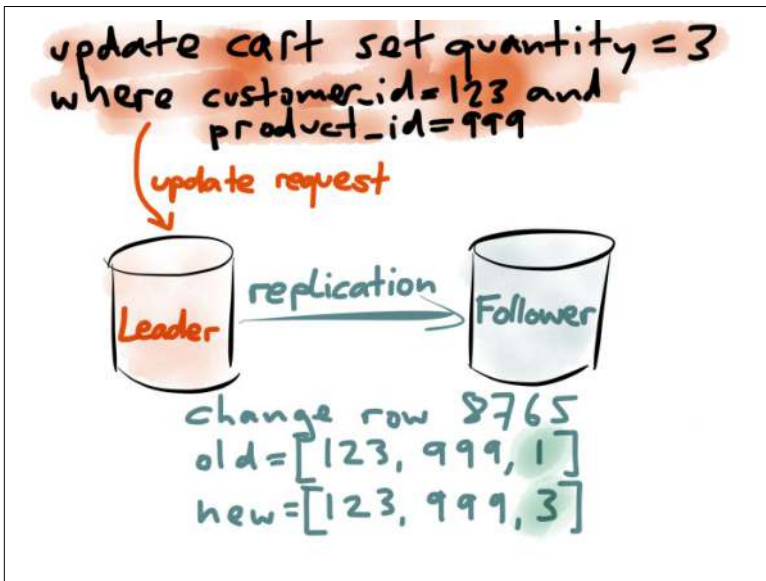 update cart set quantity = 3
where customer_id = 123 and
product_id = 999
update request
Leader
replication
Follower
change row 8765
old = [123, 999, 1]
new = [123, 999, 3]